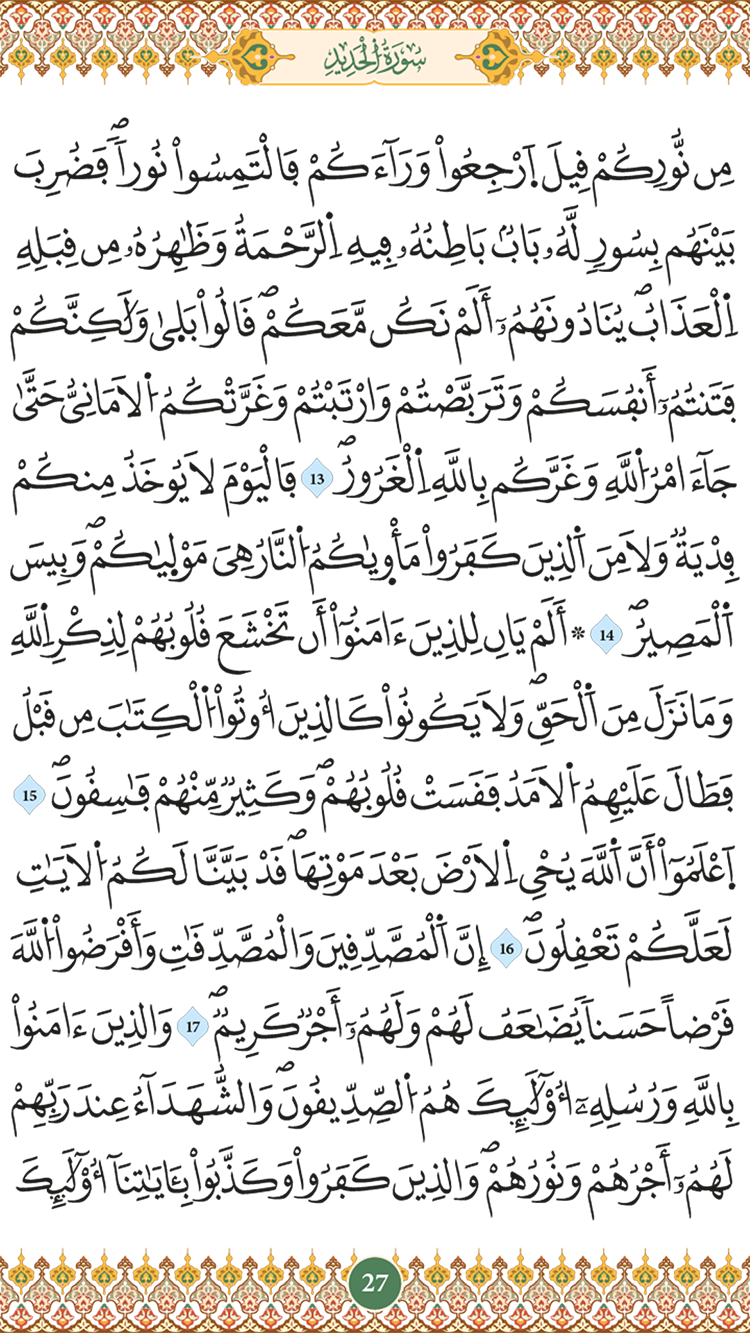 سُورَةُ الْحَدِيدِ
مِن نُّورِكُمْ قِيلَ اَرْجِعُواْ وَرَآءَكُمْ فَالْتَمِسُواْ نُوراٗۖ فَضُرِبَ
بَيْنَهُم بِسُورٖ لَّهُۥ بَابُۢ بَاطِنُهُۥ فِيهِ اِ۬لرَّحْمَةُ وَظَٰهِرُهُۥ مِن قِبَلِهِ
اِ۬لْعَذَابُۖ يُنَادُونَهُمُۥٓ أَلَمْ نَكُن مَّعَكُمْۖ قَالُواْ بَلَىٰ وَلَٰكِنَّكُمْ
فَتَنتُمُۥٓ أَنفُسَكُمْ وَتَرَبَّصْتُمْ وَارْتَبْتُمْ وَغَرَّتْكُمُ اُ۬لَامَانِيُّ حَتَّىٰ
جَآءَ امْرُ اُ۬للَّهِ وَغَرَّكُم بِاللَّهِ اِ۬لْغَرُورُۖ 13 فَالْيَوْمَ لَا يُوخَذُ مِنكُمْ
فِدْيَةٞ وَلَا مِنَ اَ۬لذِينَ كَفَرُواْ مَأْوۭيٰكُمُ اُ۬لنَّارُ هِيَ مَوْلۭيٰكُمْۖ وَبِيسَ
اَ۬لْمَصِيرُۖ 14 ۞ أَلَمْ يَانِ لِلذِينَ ءَامَنُوٓاْ أَن تَخْشَعَ قُلُوبُهُمْ لِذِكْرِ اِ۬للَّهِ
وَمَا نَزَلَ مِنَ اَ۬لْحَقِّۖ وَلَا يَكُونُواْ كَالذِينَ أُوتُواْ اُ۬لْكِتَٰبَ مِن قَبْلُ
فَطَالَ عَلَيْهِمُ اُ۬لَامَدُ فَقَسَتْ قُلُوبُهُمْۖ وَكَثِيرٞ مِّنْهُمْ فَٰسِقُونَۖ 15
اَ۪عْلَمُوٓاْ أَنَّ اَ۬للَّهَ يُحْيِ اِ۬لَارْضَ بَعْدَ مَوْتِهَاۖ قَدْ بَيَّنَّا لَكُمُ اُ۬لَايَٰتِ
لَعَلَّكُمْ تَعْقِلُونَۖ 16 إِنَّ اَ۬لْمُصَّدِّقِينَ وَالْمُصَّدِّقَٰتِ وَأَقْرَضُواْ اُ۬للَّهَ
قَرْضاً حَسَناٗ يُضَٰعَفُ لَهُمْ وَلَهُمُۥٓ أَجْرٞ كَرِيمٞۖ 17 وَالذِينَ ءَامَنُواْ
بِاللَّهِ وَرُسُلِهِۦٓ أُوْلَٰٓئِكَ هُمُ اُ۬لصِّدِّيقُونَۖ وَالشُّهَدَآءُ عِندَ رَبِّهِمْ
لَهُمُۥٓ أَجْرُهُمْ وَنُورُهُمْۖ وَالذِينَ كَفَرُواْ وَكَذَّبُواْ بِـَٔايَٰتِنَآ أُوْلَٰٓئِكَ
27